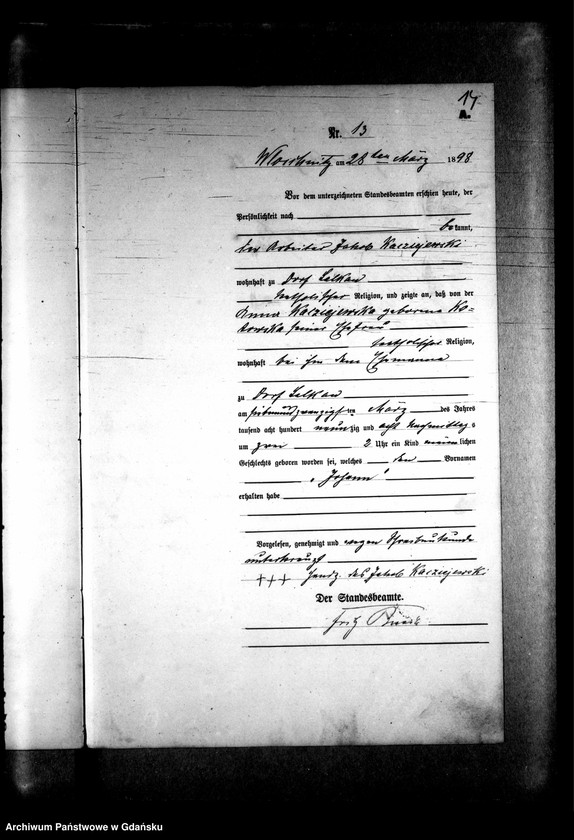 14
A.
Nr. 13
am 28 ten März 1898
Vor dem unterzeichneten Standesbeamten erschien heute, der
Persönlichkeit nach
bekannt,
der Arbeiter Jakob Kaczejewski
wohnhaft zu Dorf Lalkau
katholischer Religion, und zeigte an, daß von der
Anna Kaczejewska geborene Ko-
towska seiner Ehefrau
katholischer Religion,
wohnhaft bei ihm dem Ehemanne
zu Dorf Lalkau
am siebenundzwanzigsten März des Jahres
tausend acht hundert neunzig und acht Nachmittags
um zwei 2 Uhr ein Kind männlichen
Geschlechts geboren worden sei, welches den Vornamen
„Johann“
erhalten habe
Vorgelesen, genehmigt und wegen Schreibunkunde
unterkreuzt
+++ Handz. des Jakob Kaczejewski
Der Standesbeamte.
Fritz
Archiwum Państwowe w Gdańsku